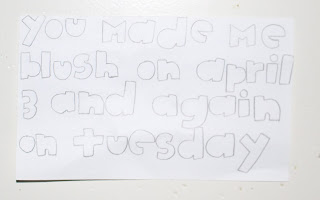 you made me
blush on april
3 and again
on tuesday